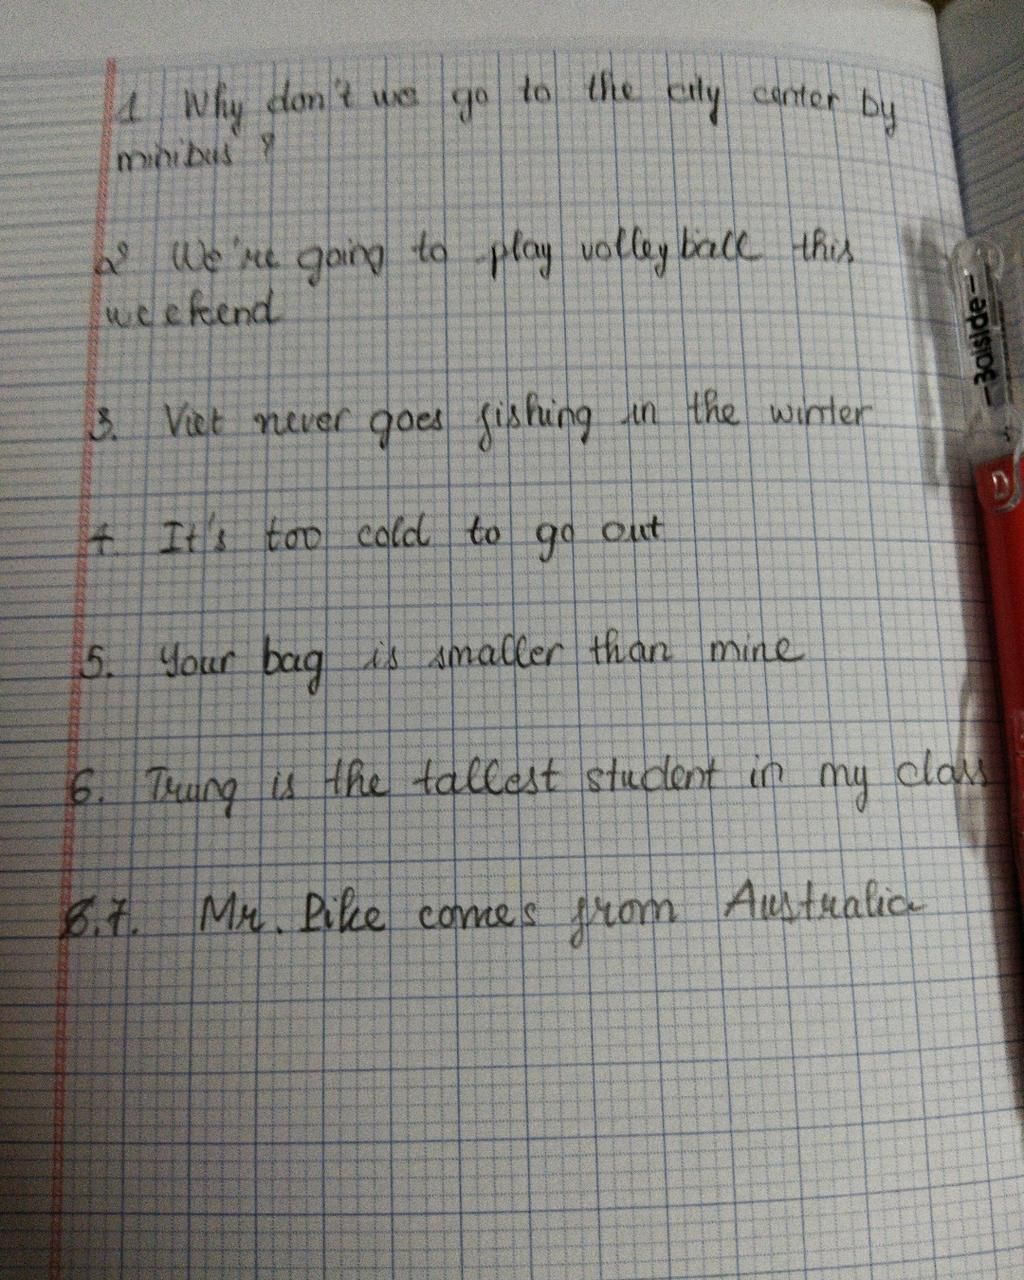 1 Why don't we go to the city center by
minibus ?
2 We're going to play volleyball this
weekend
3. Viet never goes fishing in the winter
4. It's too cold to go out
5. Your bag is smaller than mine
6. Trung is the tallest student in my class
8.7. Mr. Pike comes from Australia